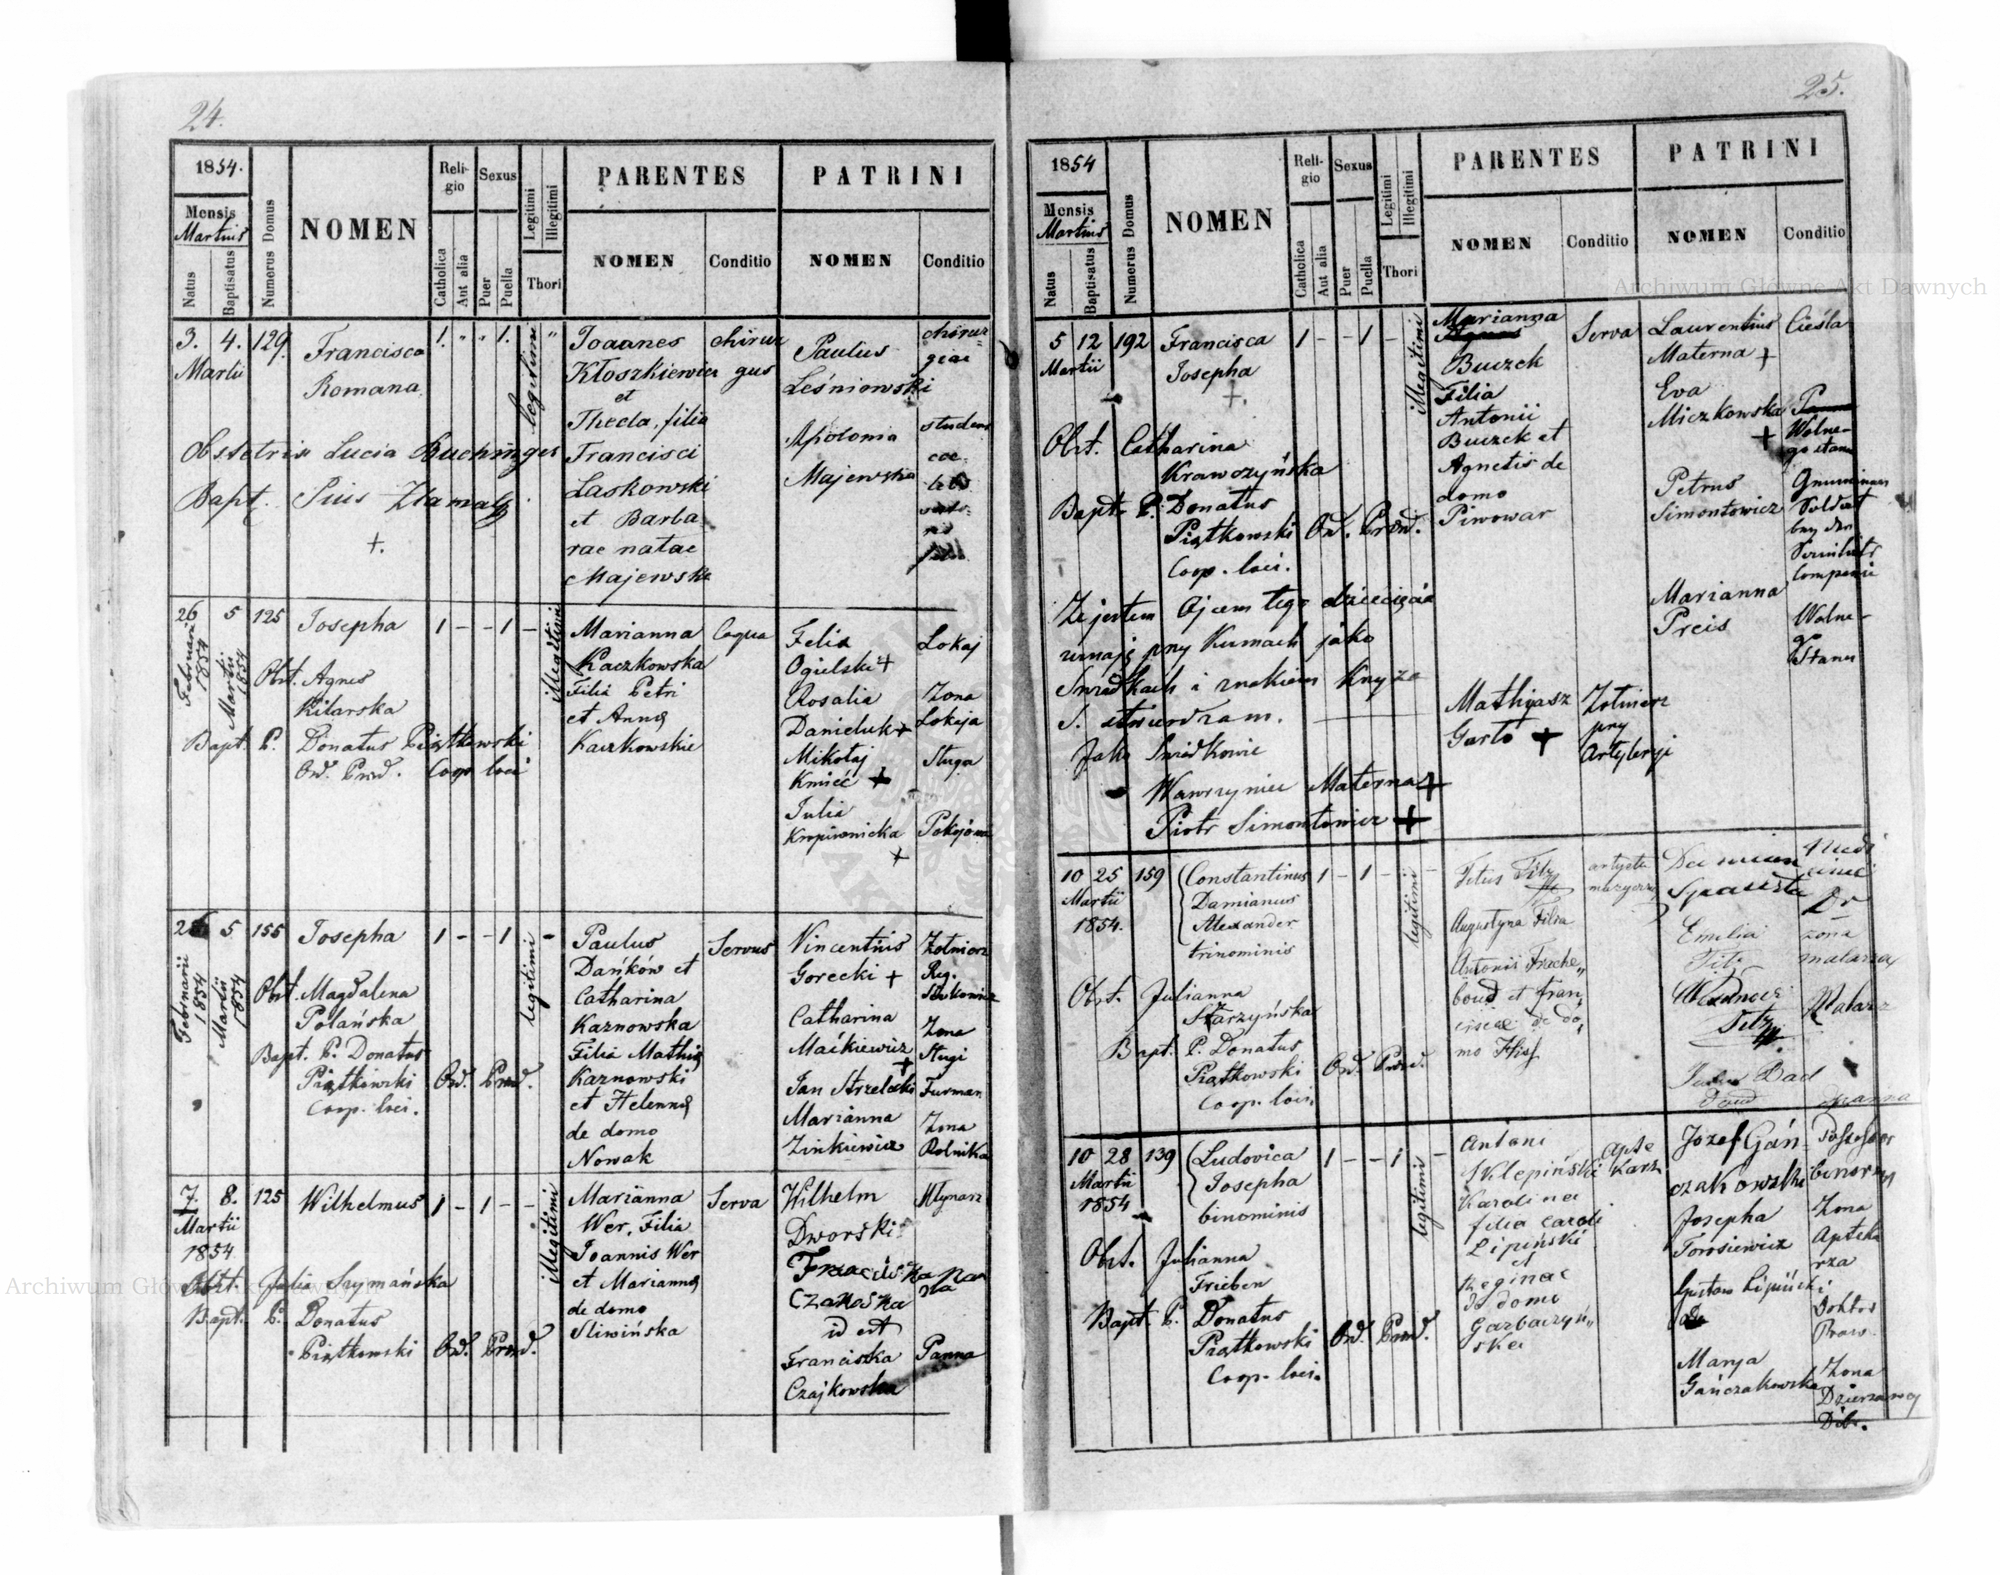 24.
1854.
Mensis
Martius
Natus
Baptisatus
Numerus Domus
NOMEN
Religio
Catholica
Aut alia
Sexus
Puer
Puella
Legitimi
Illegitimi
Thori
PARENTES
NOMEN
Conditio
PATRINI
NOMEN
Conditio
3. 4. 129.
Martii
Francisca
Romana
1. " " 1. "
legitimi
Joannes
Kłoszkiewicz
et
Thecla, filia
Francisci
Laskowski
et Barba
rae natae
Majewska
chirur
gus
Paulus
Leśniowski
Apolonia
Majewska
chirur=
giae
Obstetrix Lucia Buchinger
Bapt. Pius Złamały.
+.
26 5 125
Februarii 1854
Martii 1854
Josepha
1 - - 1 -
Illegitimi
Obst. Agnes
Kilarska
Bapt. P. Donatus Piątkowski
Ord. Pred. Coop. loci
Marianna
Kaczkowska
Filia Petri
et Annę
Kaczkowskie
Coqua
Felix
Ogielski +
Rosalia
Danieluk +
Mikołaj
Kmieć +
Julia
Kropiwnicka
+
Lokaj
Zona
Lokaja
Sługa
Pokojowa
5 155
Februarii 1854
Martii 1854
Josepha
1 - - 1 -
legitimi
Obst. Magdalena
Polańska
Bapt. P. Donatus
Piątkowski Ord. Pred.
Coop. loci.
Paulus
Dańków et
Catharina
Kaznowska
Filia Mathię
Kaznowski
et Helennę
de domo
Nowak
Servus
Vincentius
Gorecki +
Catharina
Maćkiewicz
+
Jan Strzelecki
Marianna
Zinkiewicz
Zołnierz
Reg.
Zona
Sługi
Furman
Zona
Rolnika
7. 8. 125
Martii
1854
Wilhelmus
1 - 1 - -
Illegitimi
Obst. Julia Szymańska
Bapt. P. Donatus
Piątkowski Ord. Pred.
Marianna
Wer, Filia
Joannis Wer
et Mariannę
de domo
Sliwińska
Serva
Wilhelm
Dworski
Franciszka Pan
Czakoska na
id est
Franciszka
Czajkowska
Młynarz
Panna
25.
1854
Mensis
Martius
Natus
Baptisatus
Numerus Domus
NOMEN
Religio
Catholica
Aut alia
Sexus
Puer
Puella
Legitimi
Illegitimi
Thori
PARENTES
NOMEN
Conditio
PATRINI
NOMEN
Conditio
5 12 192
Martii
Francisca
Josepha
+.
1 - - 1 -
Illegitimi
Obst. Catharina
Krawczyńska
Bapt. P. Donatus
Piątkowski Ord. Pred.
Coop. loci.
Marianna
Buczek
Filia
Antonii
Buczek et
Agnetis de
domo
Piwowar
Serva
Laurentius
Materna +
Eva
Miczkowska
+
Petrus
Simontowicz
Marianna
Preis
Cieśla
Wolne-
go stanu
Wolne-
go
Stanu
Ze jestem Ojcem tego dziecięcia
uznaję przy Kumach jako
Swiadkach i znakiem Krzyża
S. stwierdzam.
Jako Swiadkowie
Wawrzyniec Materna +
Piotr Simontowicz +
Mathyasz
Garlo +
Zołnierz
przy
Artyleryi
10 25 159
Martii
1854.
Constantinus
Damianus
Alexander
trinominis
1 - 1 - -
legitimi
Obst. Julianna
Starzyńska
Bapt. P. Donatus
Piątkowski Ord. Pred.
Coop. loci.
Titus Titz
Augustyna Filia
Antonii Freche„
boud et Fran„
ciscae de do„
mo Hiss
artysta
muzyczny
Damian
Emilia
Titz
Titz
Dr
zona
malarza
Malarz
10 28 139
Martii
1854
Ludovica
Josepha
binominis
1 - - 1 -
legitimi
Obst. Julianna
Frieben
Bapt. P. Donatus
Piątkowski Ord. Pred.
Coop. loci.
Antoni
Sklepiński
Karolina
filia Caroli
Lipiński
et
Reginae
de domo
Garbaczyń„
skei
Apte
karz
Józef Gań
czakowski
Josepha
Torosiewicz
Gustaw Lipiński
Marya
Gańczakowska
Possessor
Zona
Apteka
rza
Doktor
Praw.
Zona
Dzierzawcy
Dóbr.
Archiwum Główne Akt Dawnych
Archiwum Główne Akt Dawnych